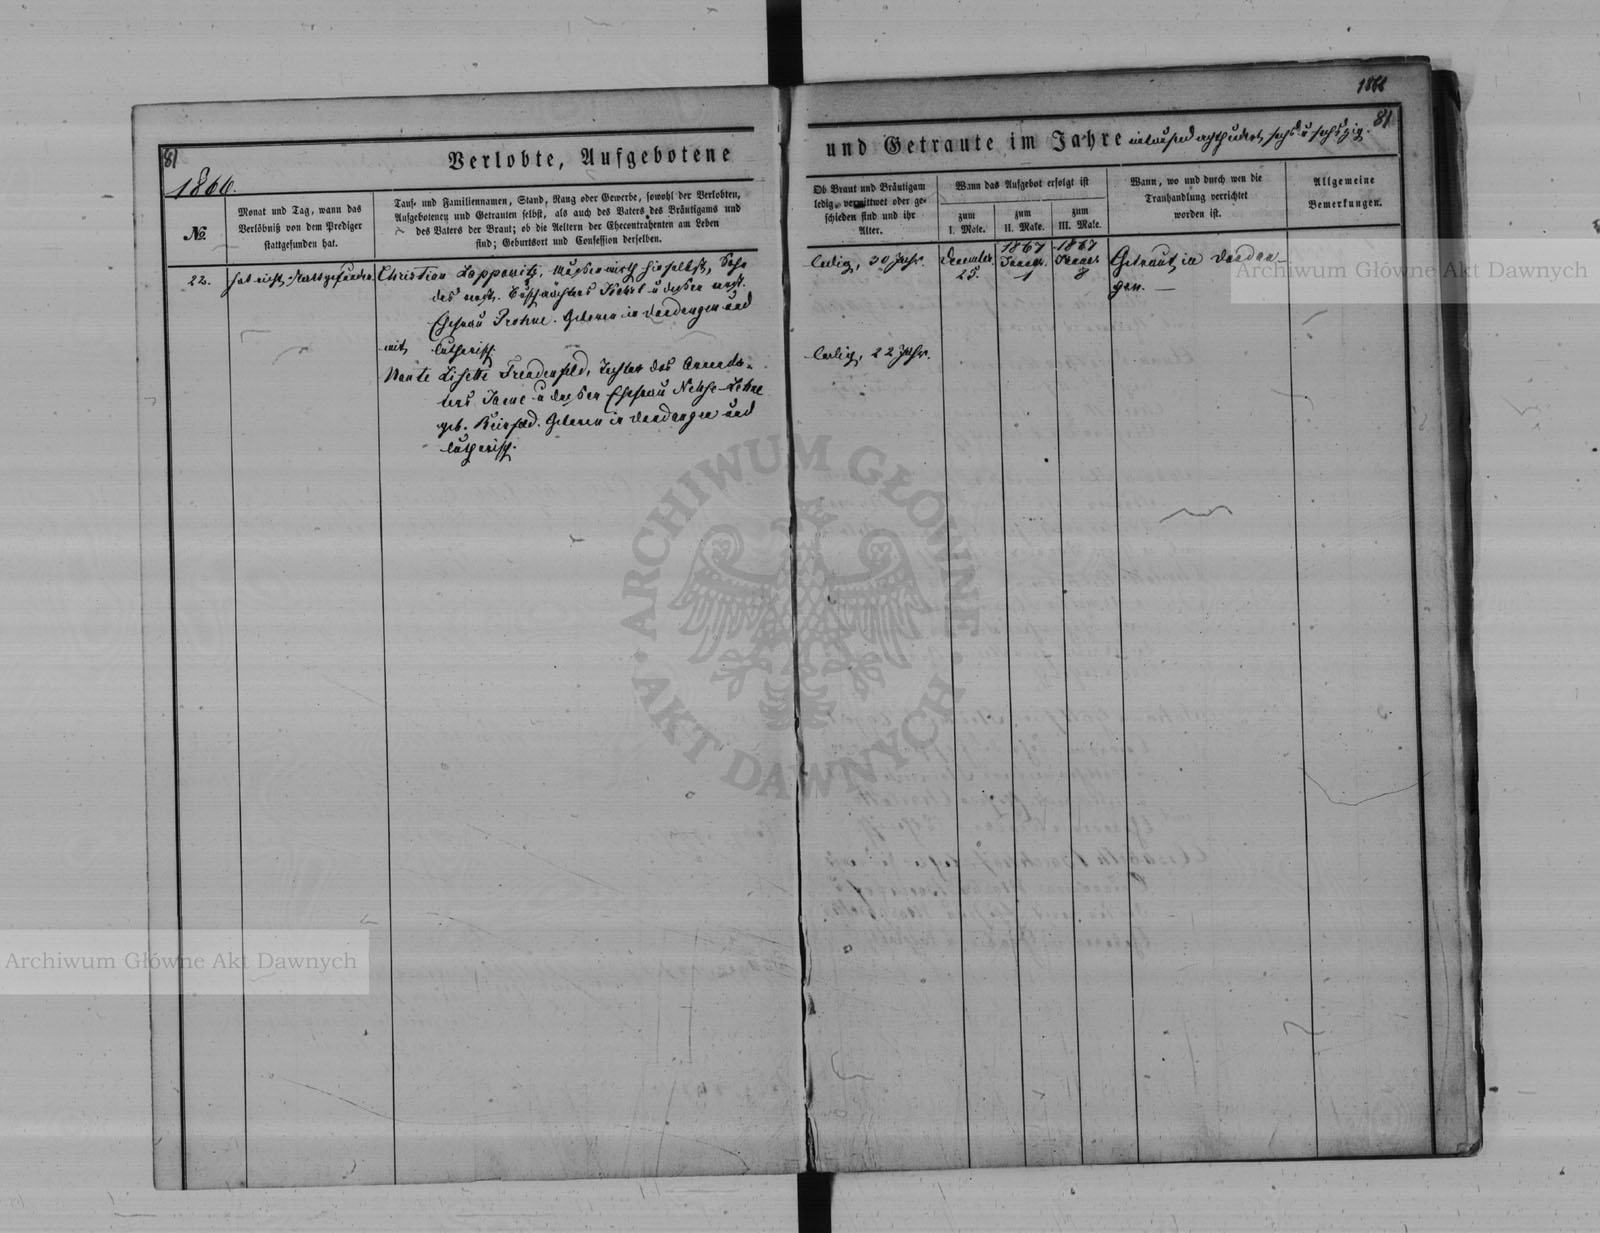 1866
81
81
Verlobte, Aufgebotene
und Getraute im Jahre eintausend achthundert sechs u sechszig.
1866.
№.
Monat und Tag, wann das
Verlöbniß von dem Prediger
stattgefunden hat.
Tauf- und Familiennamen, Stand, Rang oder Gewerbe, sowohl der Verlobten,
Aufgebotenen und Getrauten selbst, als auch des Vaters des Bräutigams und
des Vaters der Braut; ob die Aeltern der Ehecontrahenten am Leben
sind; Geburtsort und Confession derselben.
Ob Braut und Bräutigam
ledig, verwittwet oder ge-
schieden sind und ihr
Alter.
Wann das Aufgebot erfolgt ist
zum
I. Male.
zum
II. Male.
zum
III. Male.
Wann, wo und durch wen die
Trauhandlung verrichtet
worden ist.
Allgemeine
Bemerkungen.
22.
hat nicht stattgefunden.
Christian Lappowitz, hieselbst, Sohn
des u dessen
Ehefrau Geboren in Dondangen und
mit lutherisch
Lisette Freudenfeld, Tochter des
u dessen Ehefrau
geb. Geboren in Dondangen und
lutherisch.
ledig, 30 Jahr.
ledig, 22 Jahr.
December
25.
1867
Januar
1
1867
Januar
8
Getraut in Dondan-
gen.
ARCHIWUM GŁÓWNE AKT DAWNYCH
Archiwum Główne Akt Dawnych
Archiwum Główne Akt Dawnych